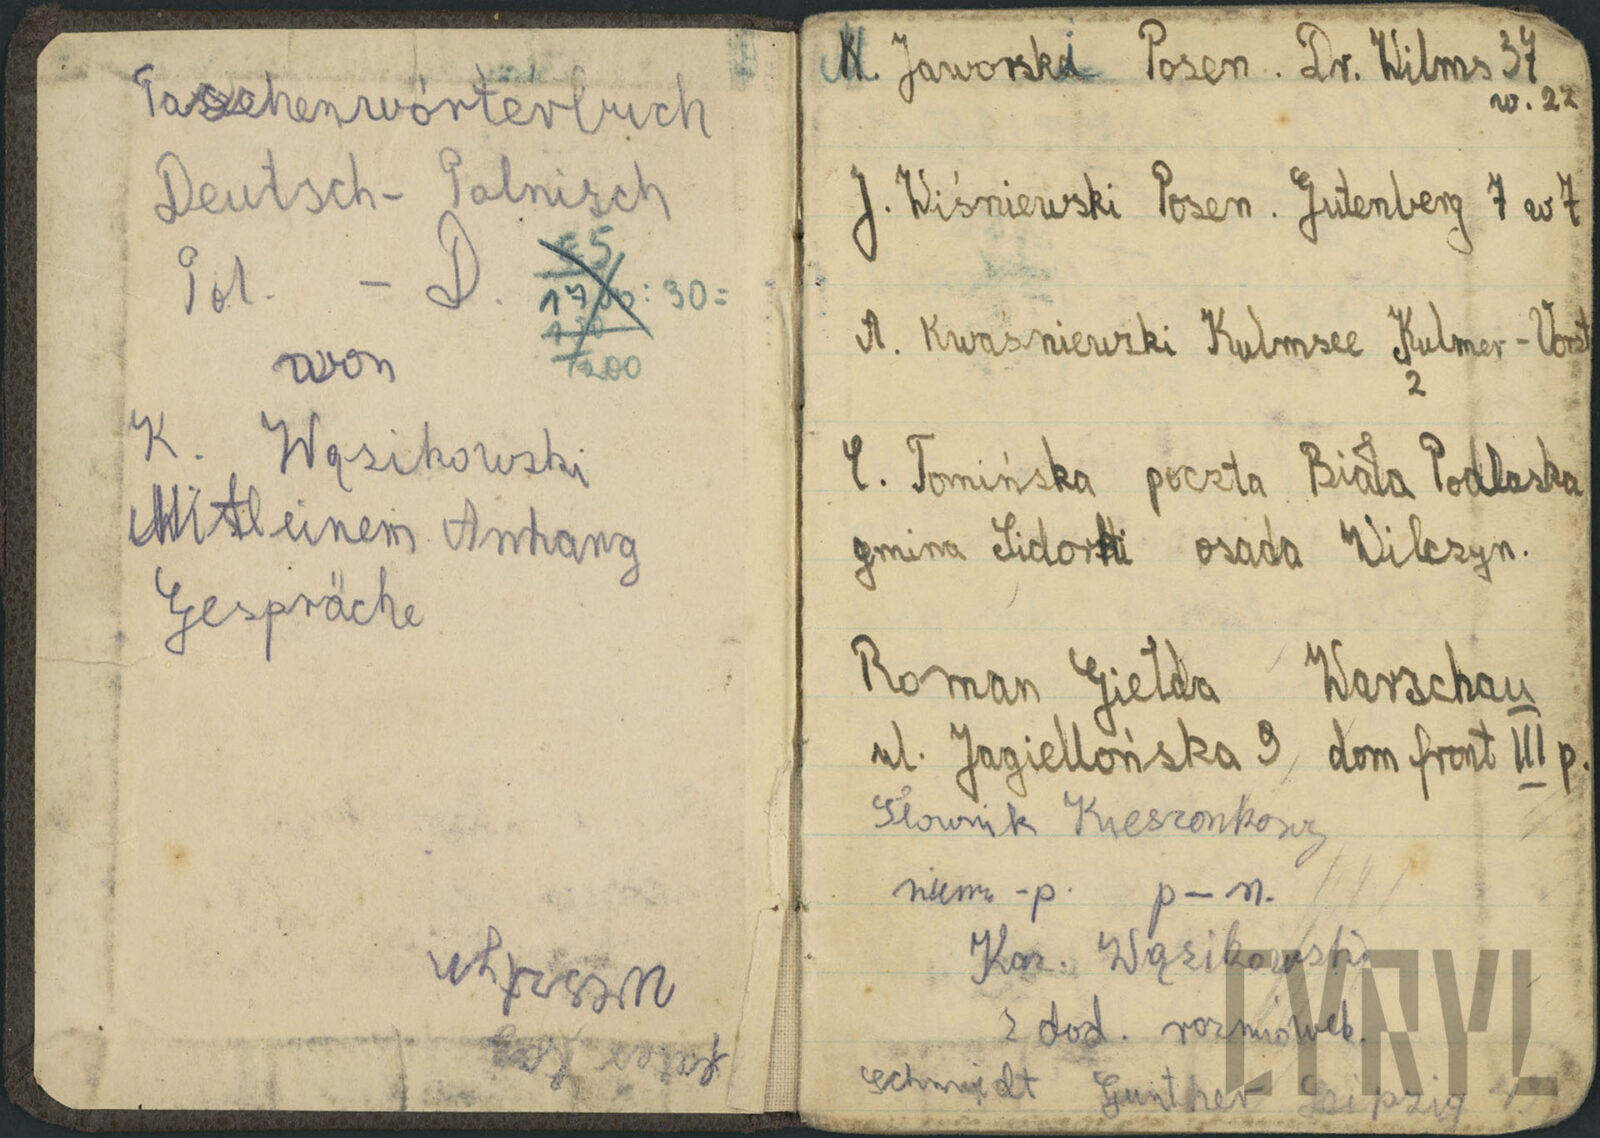 Taschenwörterbuch
Deutsch - Polnisch
Pol. - D.
55
1700 : 30 =
150
1200
won
K. Wąsikowski
Mit einem Anhang
Gespräche
M. Jaworski Posen. Dr. Wilms 37
w. 22
J. Wiśniewski Posen. Gutenberg 7 w 7
A. Kwaśniewski Kulmsee Kulmer - Vorst
2
C. Tomińska poczta Biała Podlaska
gmina Sidorki osada Wilczyn.
Roman Giełda Warschau
ul. Jagiellońska 9 dom front III p.
Słownik Kieszonkowy
niem. - p. p - n.
Kaz. Wąsikowski
z dod. rozmówek.
Schmidt Gunther Leipzig
CYRYL